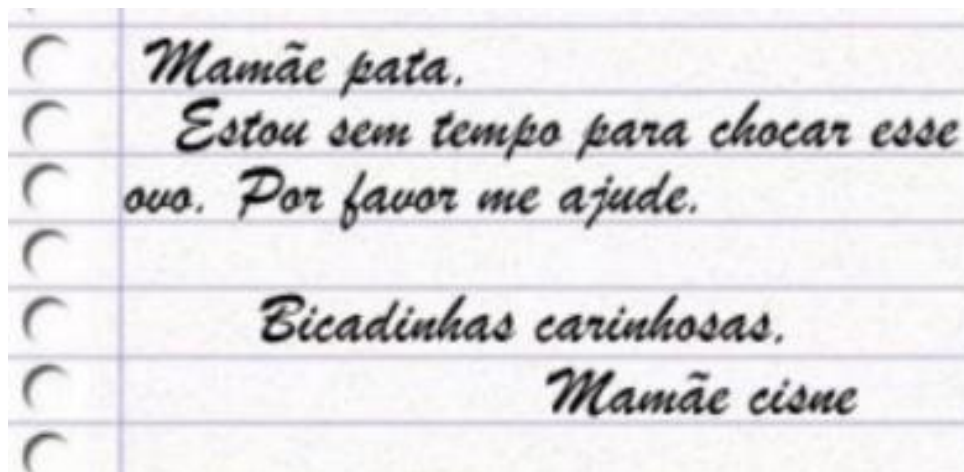 Mamãe pata.
Estou sem tempo para chocar esse
ovo. Por favor me ajude.
Bicadinhas carinhosas.
Mamãe cisne